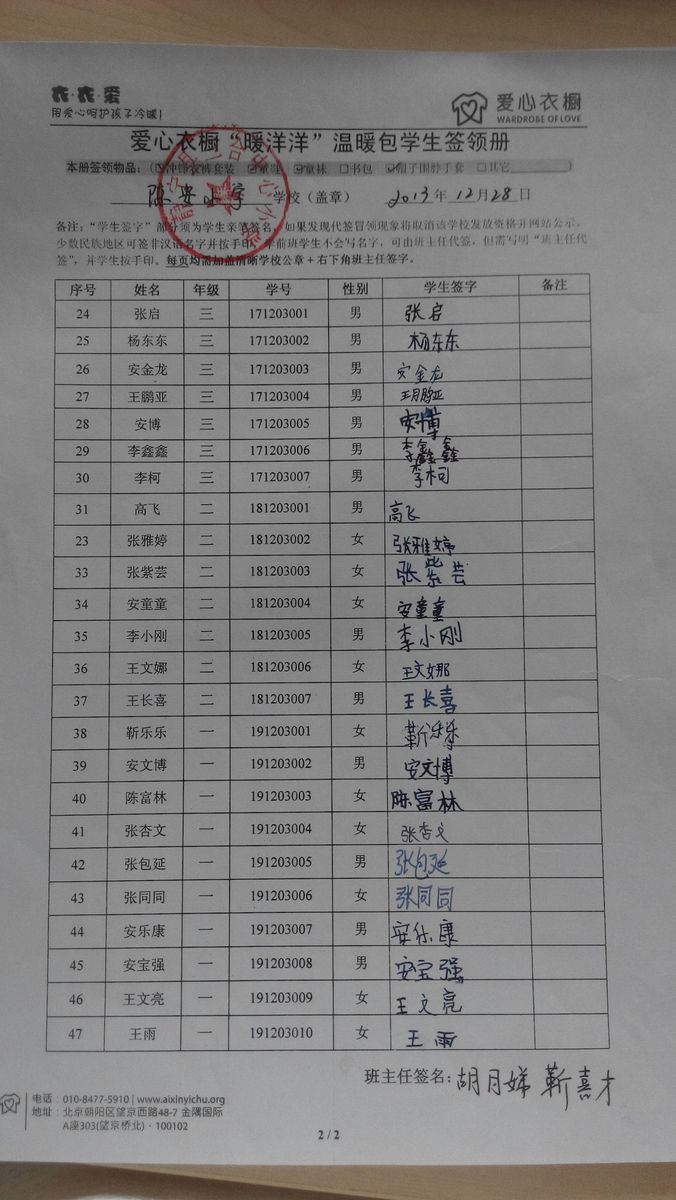 衣·衣·爱
用爱心呵护孩子冷暖!
爱心衣橱
WARDROBE OF LOVE
爱心衣橱“暖洋洋”温暖包学生签领册
本册签领物品:(☑冲锋衣裤套装 ☑童鞋 ☑童袜 □书包 ☑帽子围脖手套 □其它 )
陈安小学 学校(盖章) 2013年12月28日
备注:“学生签字”部分须为学生亲笔签名,如果发现代签冒领现象将取消该学校发放资格并网站公示,
少数民族地区可签非汉语名字并按手印。学前班学生不会写名字,可由班主任代签,但需写明“班主任代
签”,并学生按手印。每页均需加盖清晰学校公章+右下角班主任签字。
序号 姓名 年级 学号 性别 学生签字 备注
24 张启 三 171203001 男 张启
25 杨东东 三 171203002 男 杨东东
26 安金龙 三 171203003 男 安金龙
27 王鹏亚 三 171203004 男 王鹏亚
28 安博 三 171203005 男 安博
29 李鑫鑫 三 171203006 男 李鑫鑫
30 李柯 三 171203007 男 李柯
31 高飞 二 181203001 男 高飞
23 张雅婷 二 181203002 女 张雅婷
33 张紫芸 二 181203003 女 张紫芸
34 安童童 二 181203004 女 安童童
35 李小刚 二 181203005 男 李小刚
36 王文娜 二 181203006 女 王文娜
37 王长喜 二 181203007 男 王长喜
38 靳乐乐 一 191203001 女 靳乐乐
39 安文博 一 191203002 男 安文博
40 陈富林 一 191203003 女 陈富林
41 张杏文 一 191203004 女 张杏文
42 张包延 一 191203005 男 张包延
43 张同同 一 191203006 女 张同同
44 安乐康 一 191203007 男 安乐康
45 安宝强 一 191203008 男 安宝强
46 王文亮 一 191203009 女 王文亮
47 王雨 一 191203010 女 王雨
班主任签名:胡月娣 靳喜才
电话:010-8477-5910 | www.aixinyichu.org
地址:北京朝阳区望京西路48-7 金隅国际
A座303(望京桥北)·100102
2 / 2